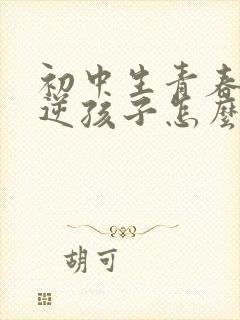 初中生青春
逆孩子怎麼
胡可